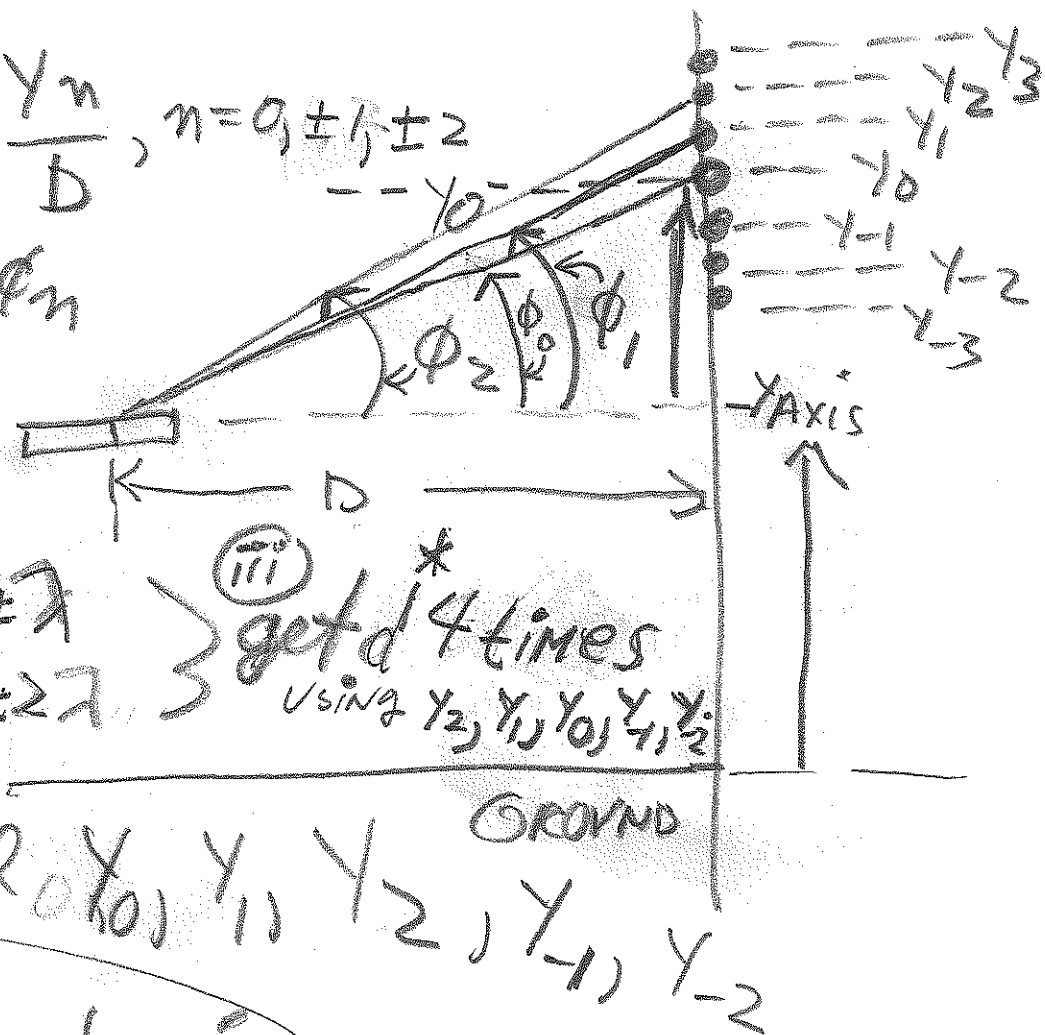 Yn
D
, n=0, ±1, ±2
Y3
Y2
Y1
Y0
Y-1
Y-2
Y-3
Y0
ϕn
ϕ2
ϕ0
ϕ1
Y AXIS
D
±λ
±2λ
(iii)
get d* 4 times
USING Y2, Y1, Y0, Y-1, Y-2
GROUND
Y0, Y1, Y2, Y-1, Y-2